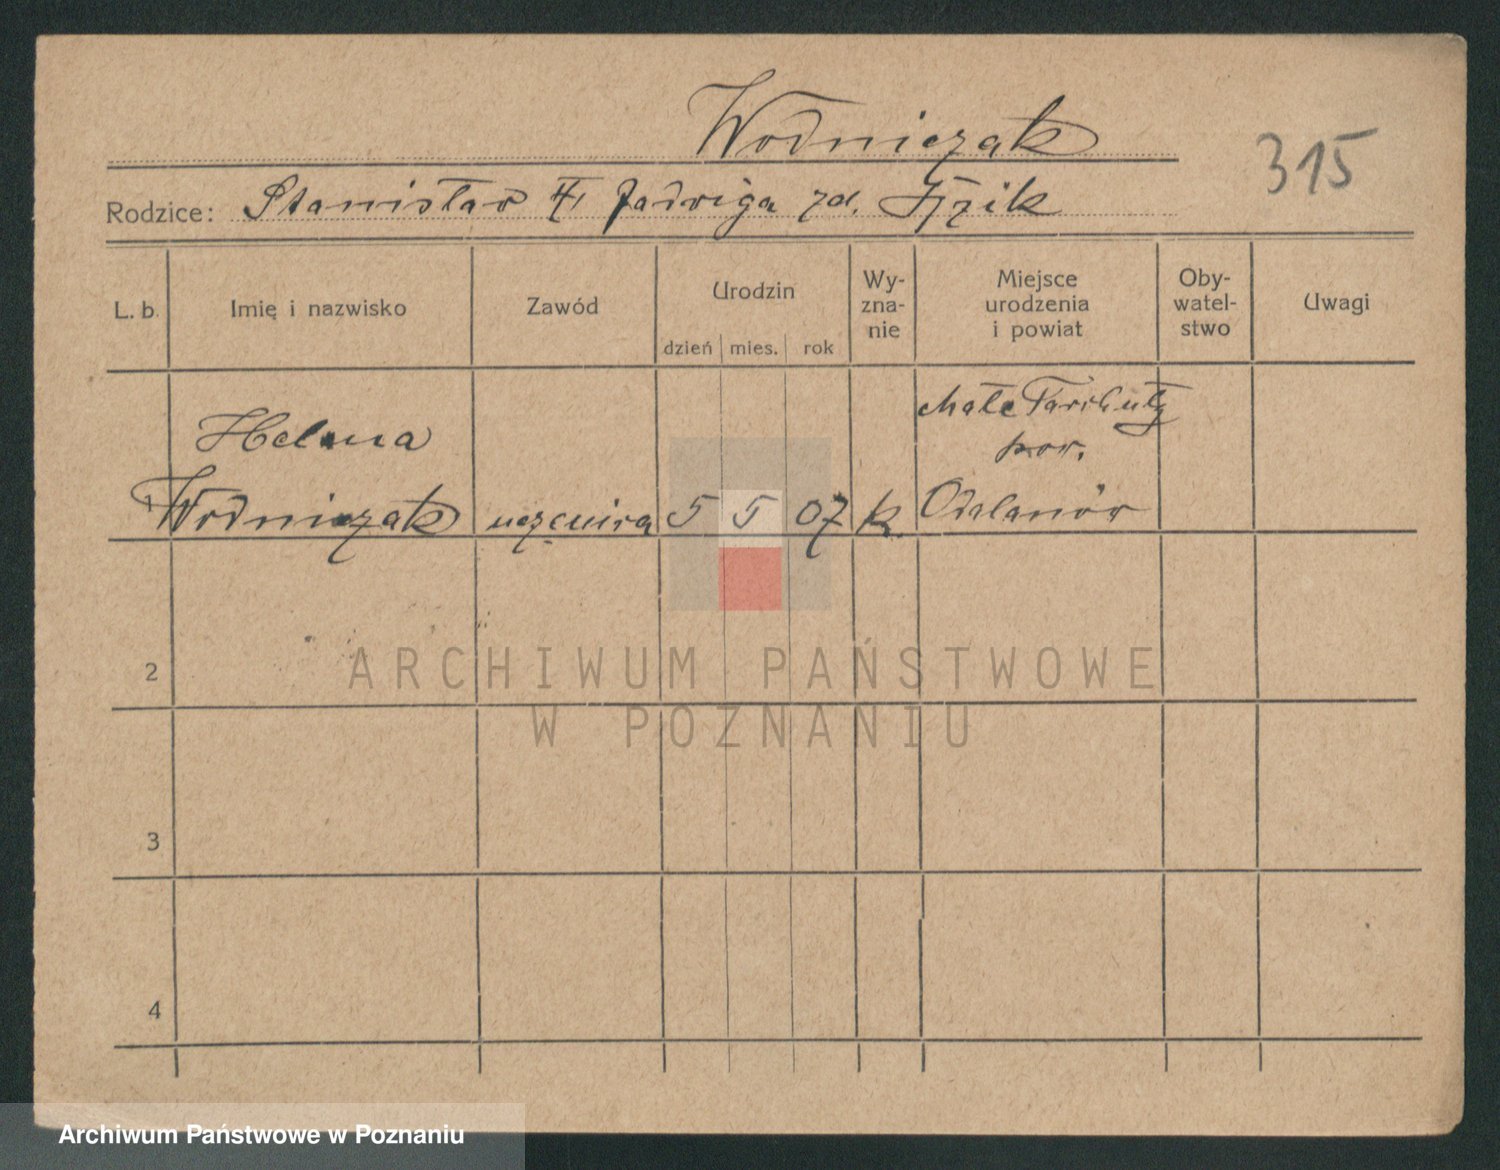 Wodniczak
315
Rodzice: Stanisław Jadwiga zd.
L. b. Imię i nazwisko Zawód Urodzin Wy-zna-nie Miejsce urodzenia i powiat Oby-watel-stwo Uwagi
dzień mies. rok
Helena Małe
pow.
1 Wodniczak 5 5 07 k. Odolanów
2
ARCHIWUM PAŃSTWOWE
W POZNANIU
3
4
Archiwum Państwowe w Poznaniu